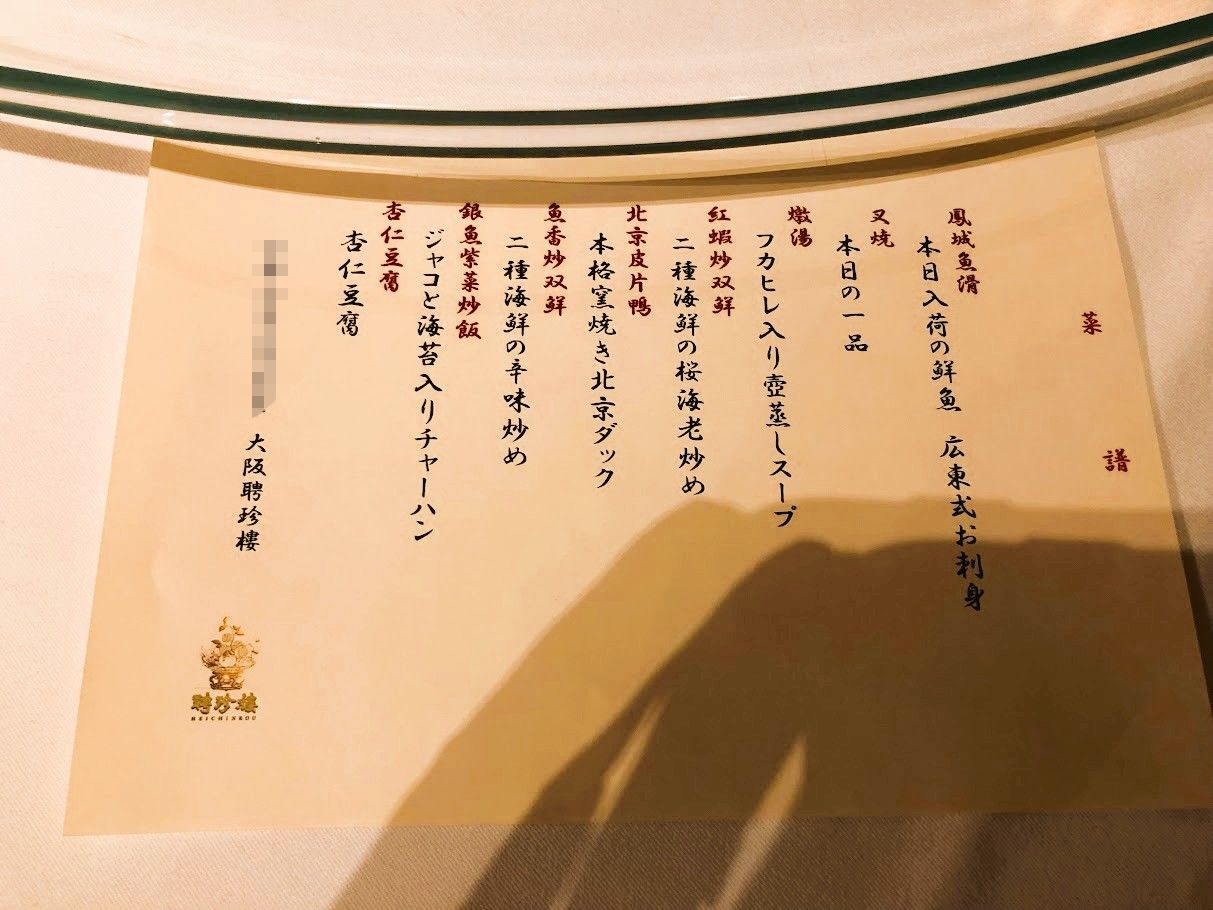 菜譜
鳳城魚滑
本日入荷の鮮魚 広東式お刺身
叉焼
本日の一品
燉湯
フカヒレ入り壺蒸しスープ
紅蝦炒双鮮
二種海鮮の桜海老炒め
北京皮片鴨
本格窯焼き北京ダック
魚香炒双鮮
二種海鮮の辛味炒め
銀魚紫菜炒飯
ジャコと海苔入りチャーハン
杏仁豆腐
杏仁豆腐
大阪聘珍樓
聘珍樓
HEICHINROU